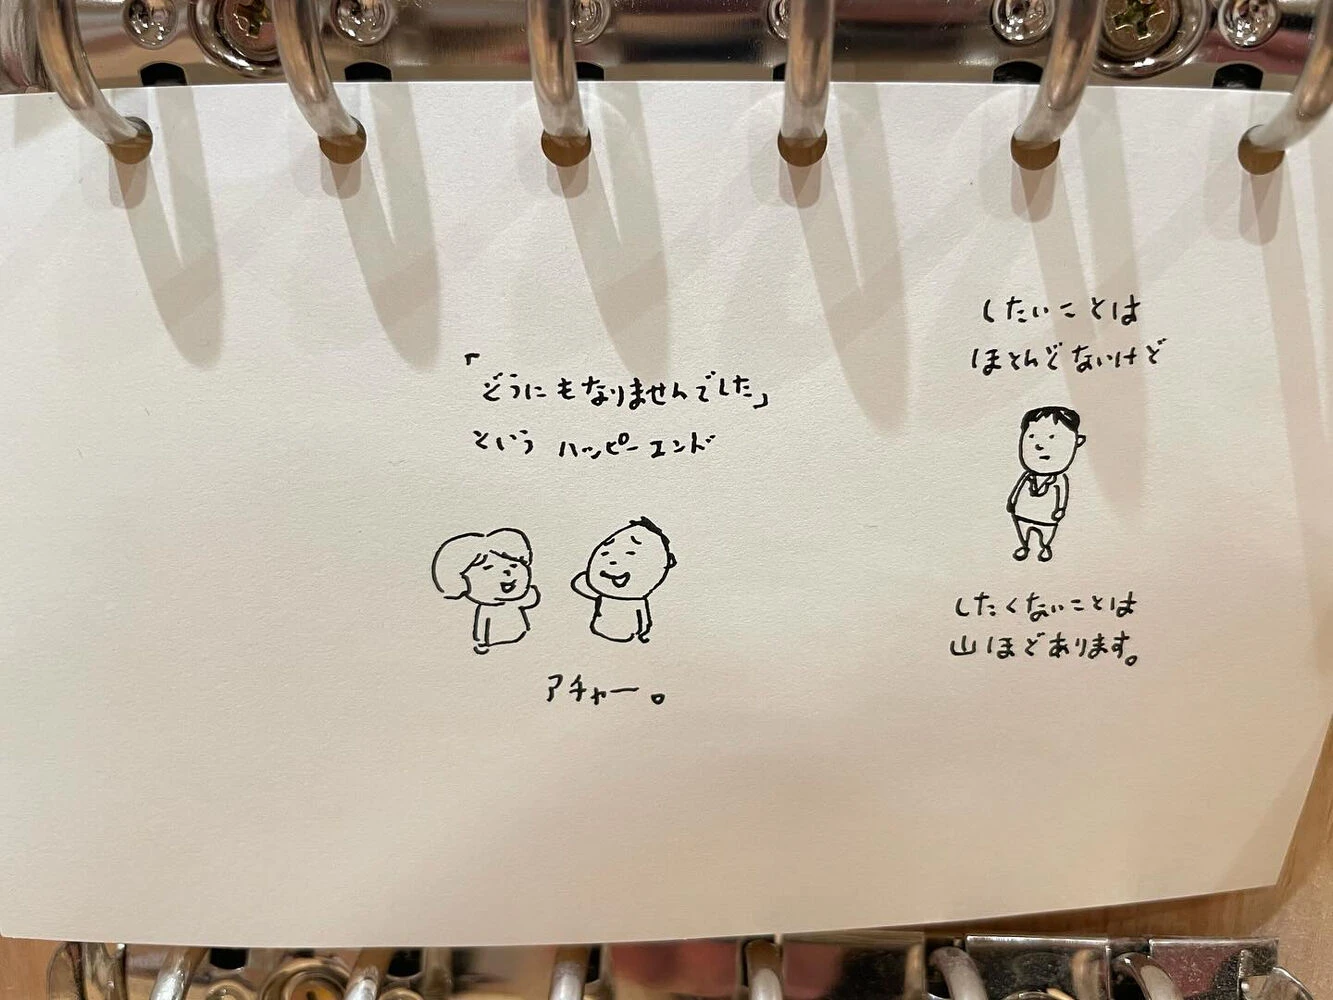 「どうにもなりませんでした」
という ハッピーエンド
アチャー。
したいことは
ほとんどないけど
したくないことは
山ほどあります。